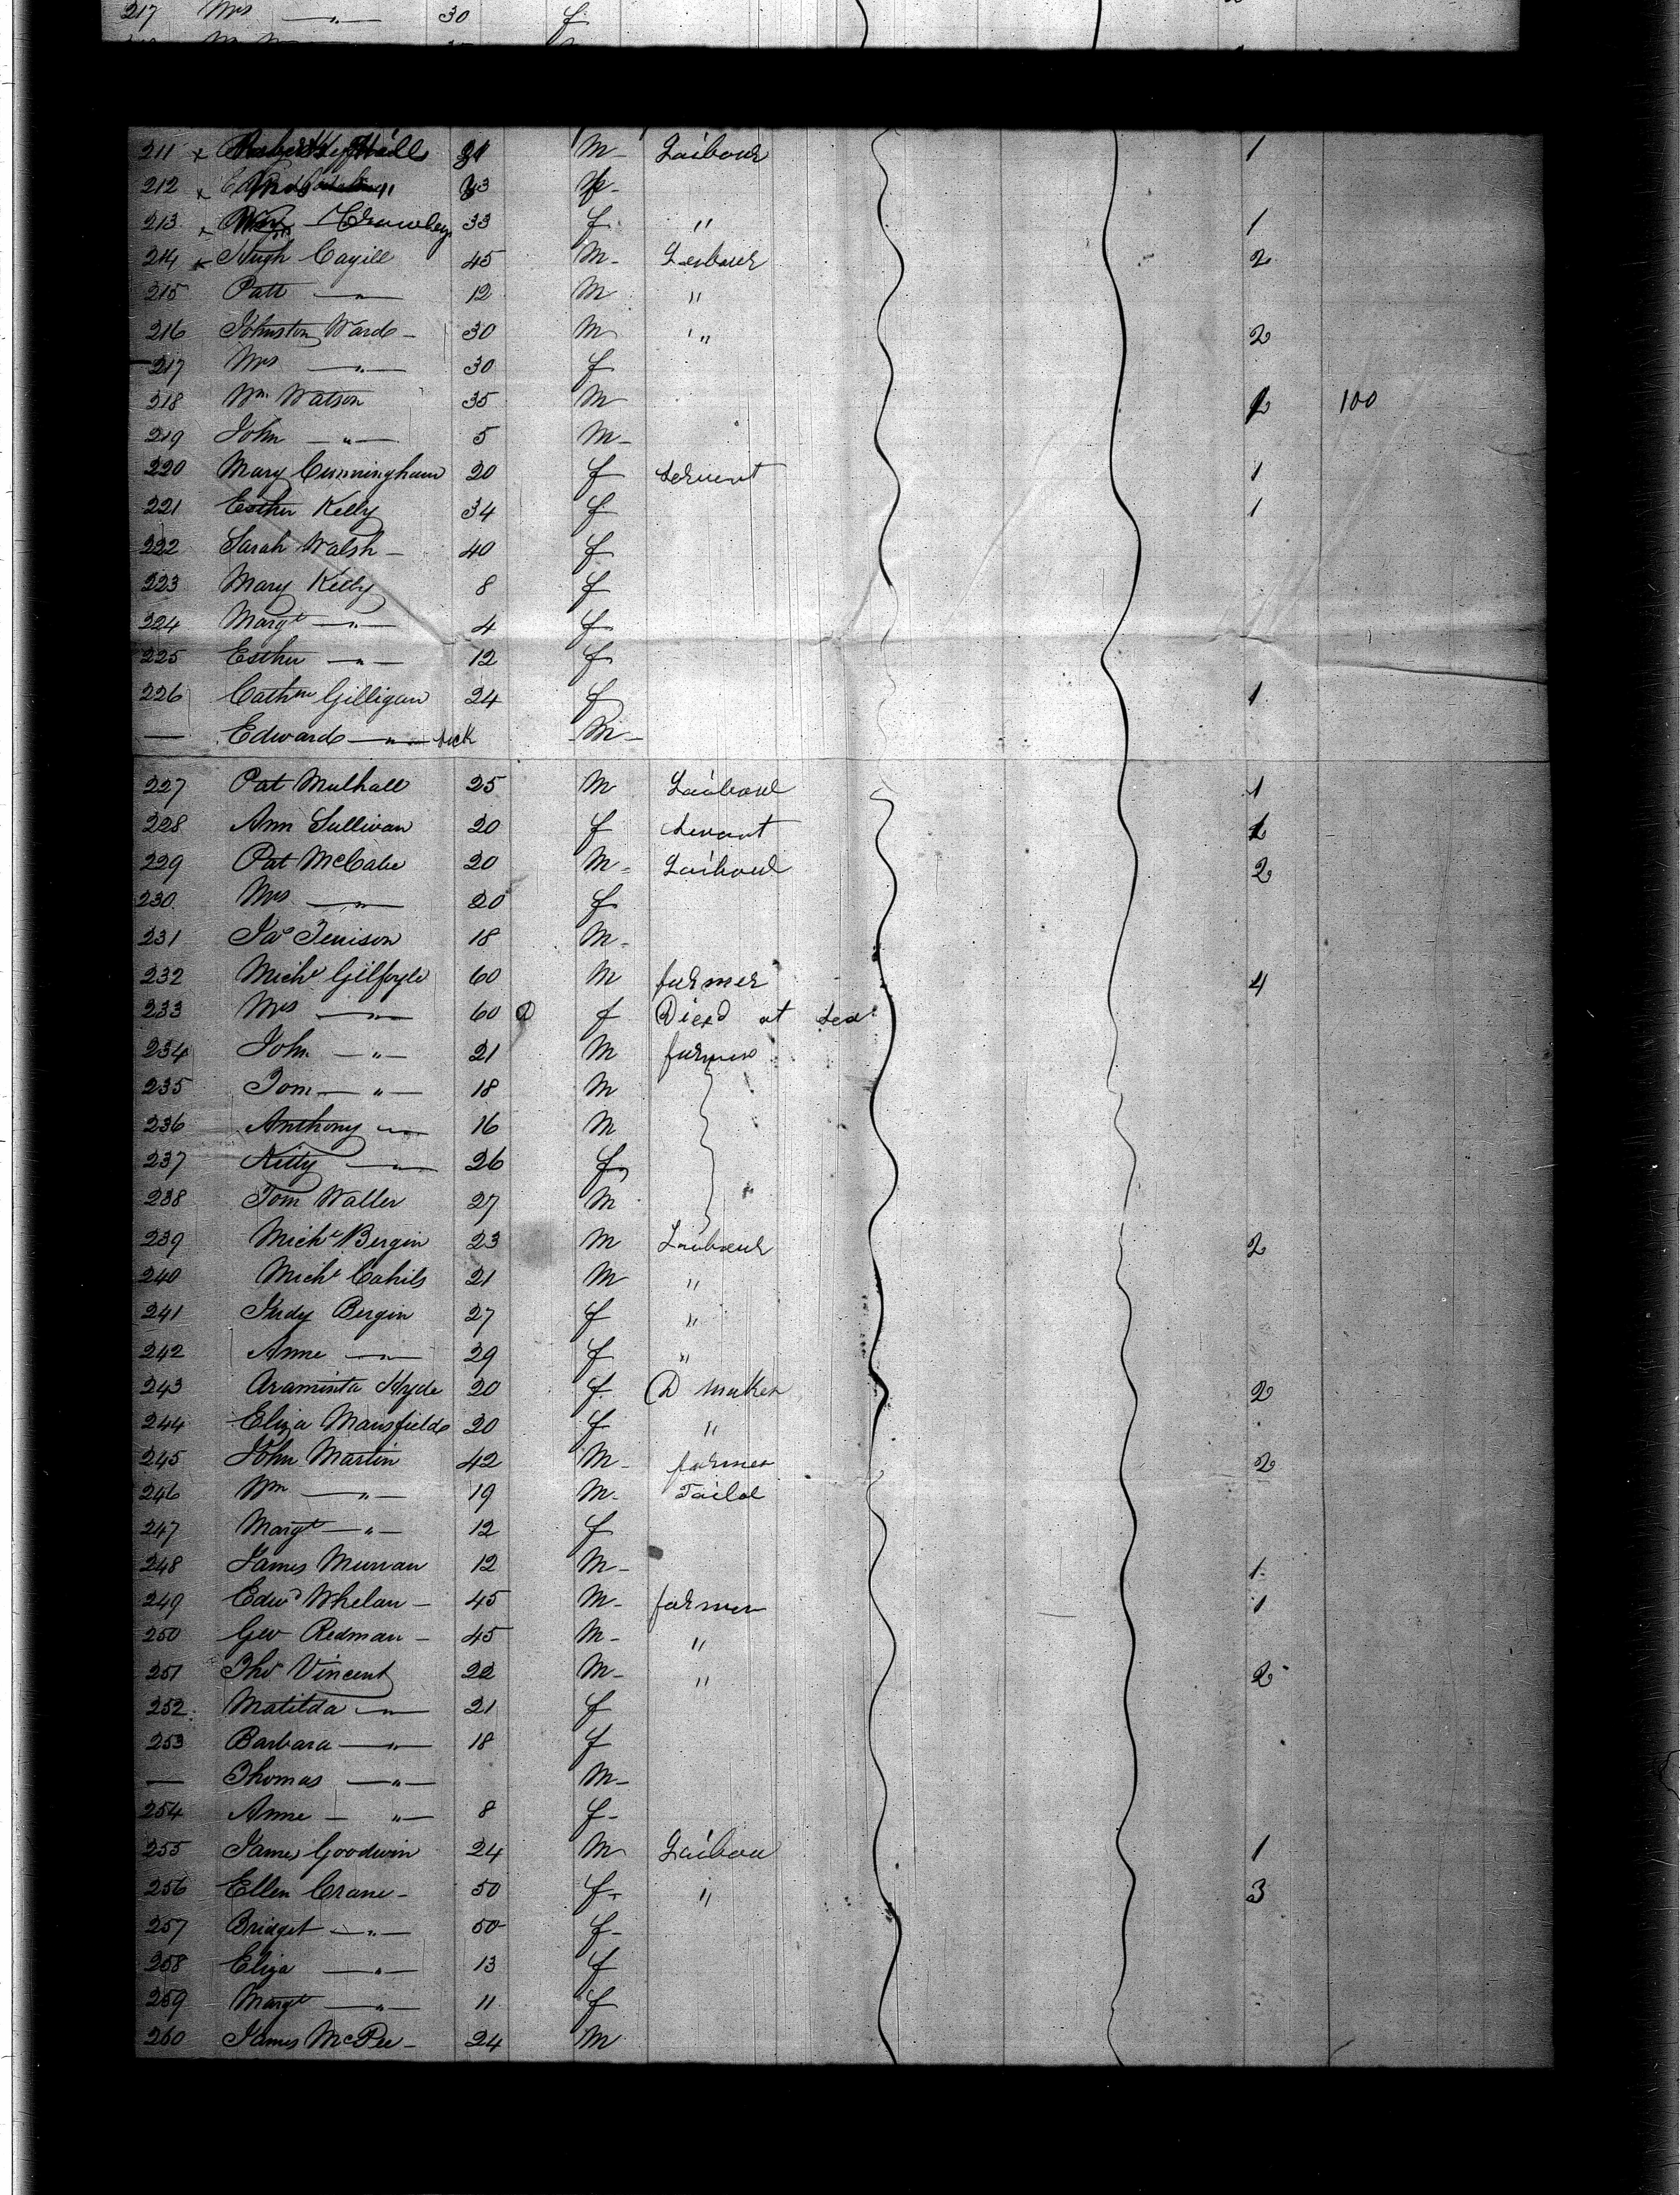 217 Mrs —"— 30 f
211 x Hill M Laibour 1
212 x 43
213 x Crowley 33 f " 1
214 x Hugh Cagill 45 M Laibour 2
215 Patt —"— 12 M "
216 Johnston Ward 30 M " 2
217 Mrs —"— 30 f
218 Wm Watson 35 M 100
219 John —"— 5 M
220 Mary Cunningham 20 f Servent 1
221 Esther Kelly 34 f 1
222 Sarah Walsh 40 f
223 Mary Kelly 8 f
224 Margt —"— 4 f
225 Esther —"— 12 f
226 Cathne Gilligan 24 f 1
— Edward —"— Sick M
227 Pat Mulhall 25 M Laibour 1
228 Ann Sullivan 20 f Servant 1
229 Pat McCabe 20 M Laibour 2
230 Mrs —"— 20 f
231 Jas Tenison 18 M
232 Michl Gilfoyle 60 M farmer 4
233 Mrs —"— 60 D f Died at Sea
234 John —"— 21 M farmer
235 Tom —"— 18 M
236 Anthony —"— 16 M
237 Kitty —"— 26 f
238 Tom Waller 27 M
239 Michl Bergin 23 M Laibour 2
240 Michl Cahils 21 M "
241 Judy Bergin 27 f "
242 Anne —"— 29 f "
243 Araminta Hyde 20 f D maker 2
244 Eliza Mansfield 20 f "
245 John Martin 42 M farmer 2
246 Wm —"— 19 M Tailor
247 Margt —"— 12 f
248 James Murran 12 M 1
249 Edwd Whelan 45 M farmer 1
250 Geo Redman 45 M "
251 Thos Vincent 22 M " 2
252 Matilda —"— 21 f
253 Barbara —"— 18 f
— Thomas —"— M
254 Anne —"— 8 f
255 James Goodwin 24 M Laibou 1
256 Ellen Crane 50 f " 3
257 Bridget —"— 50 f
258 Eliza —"— 13 f
259 Margt —"— 11 f
260 James McPee 24 M